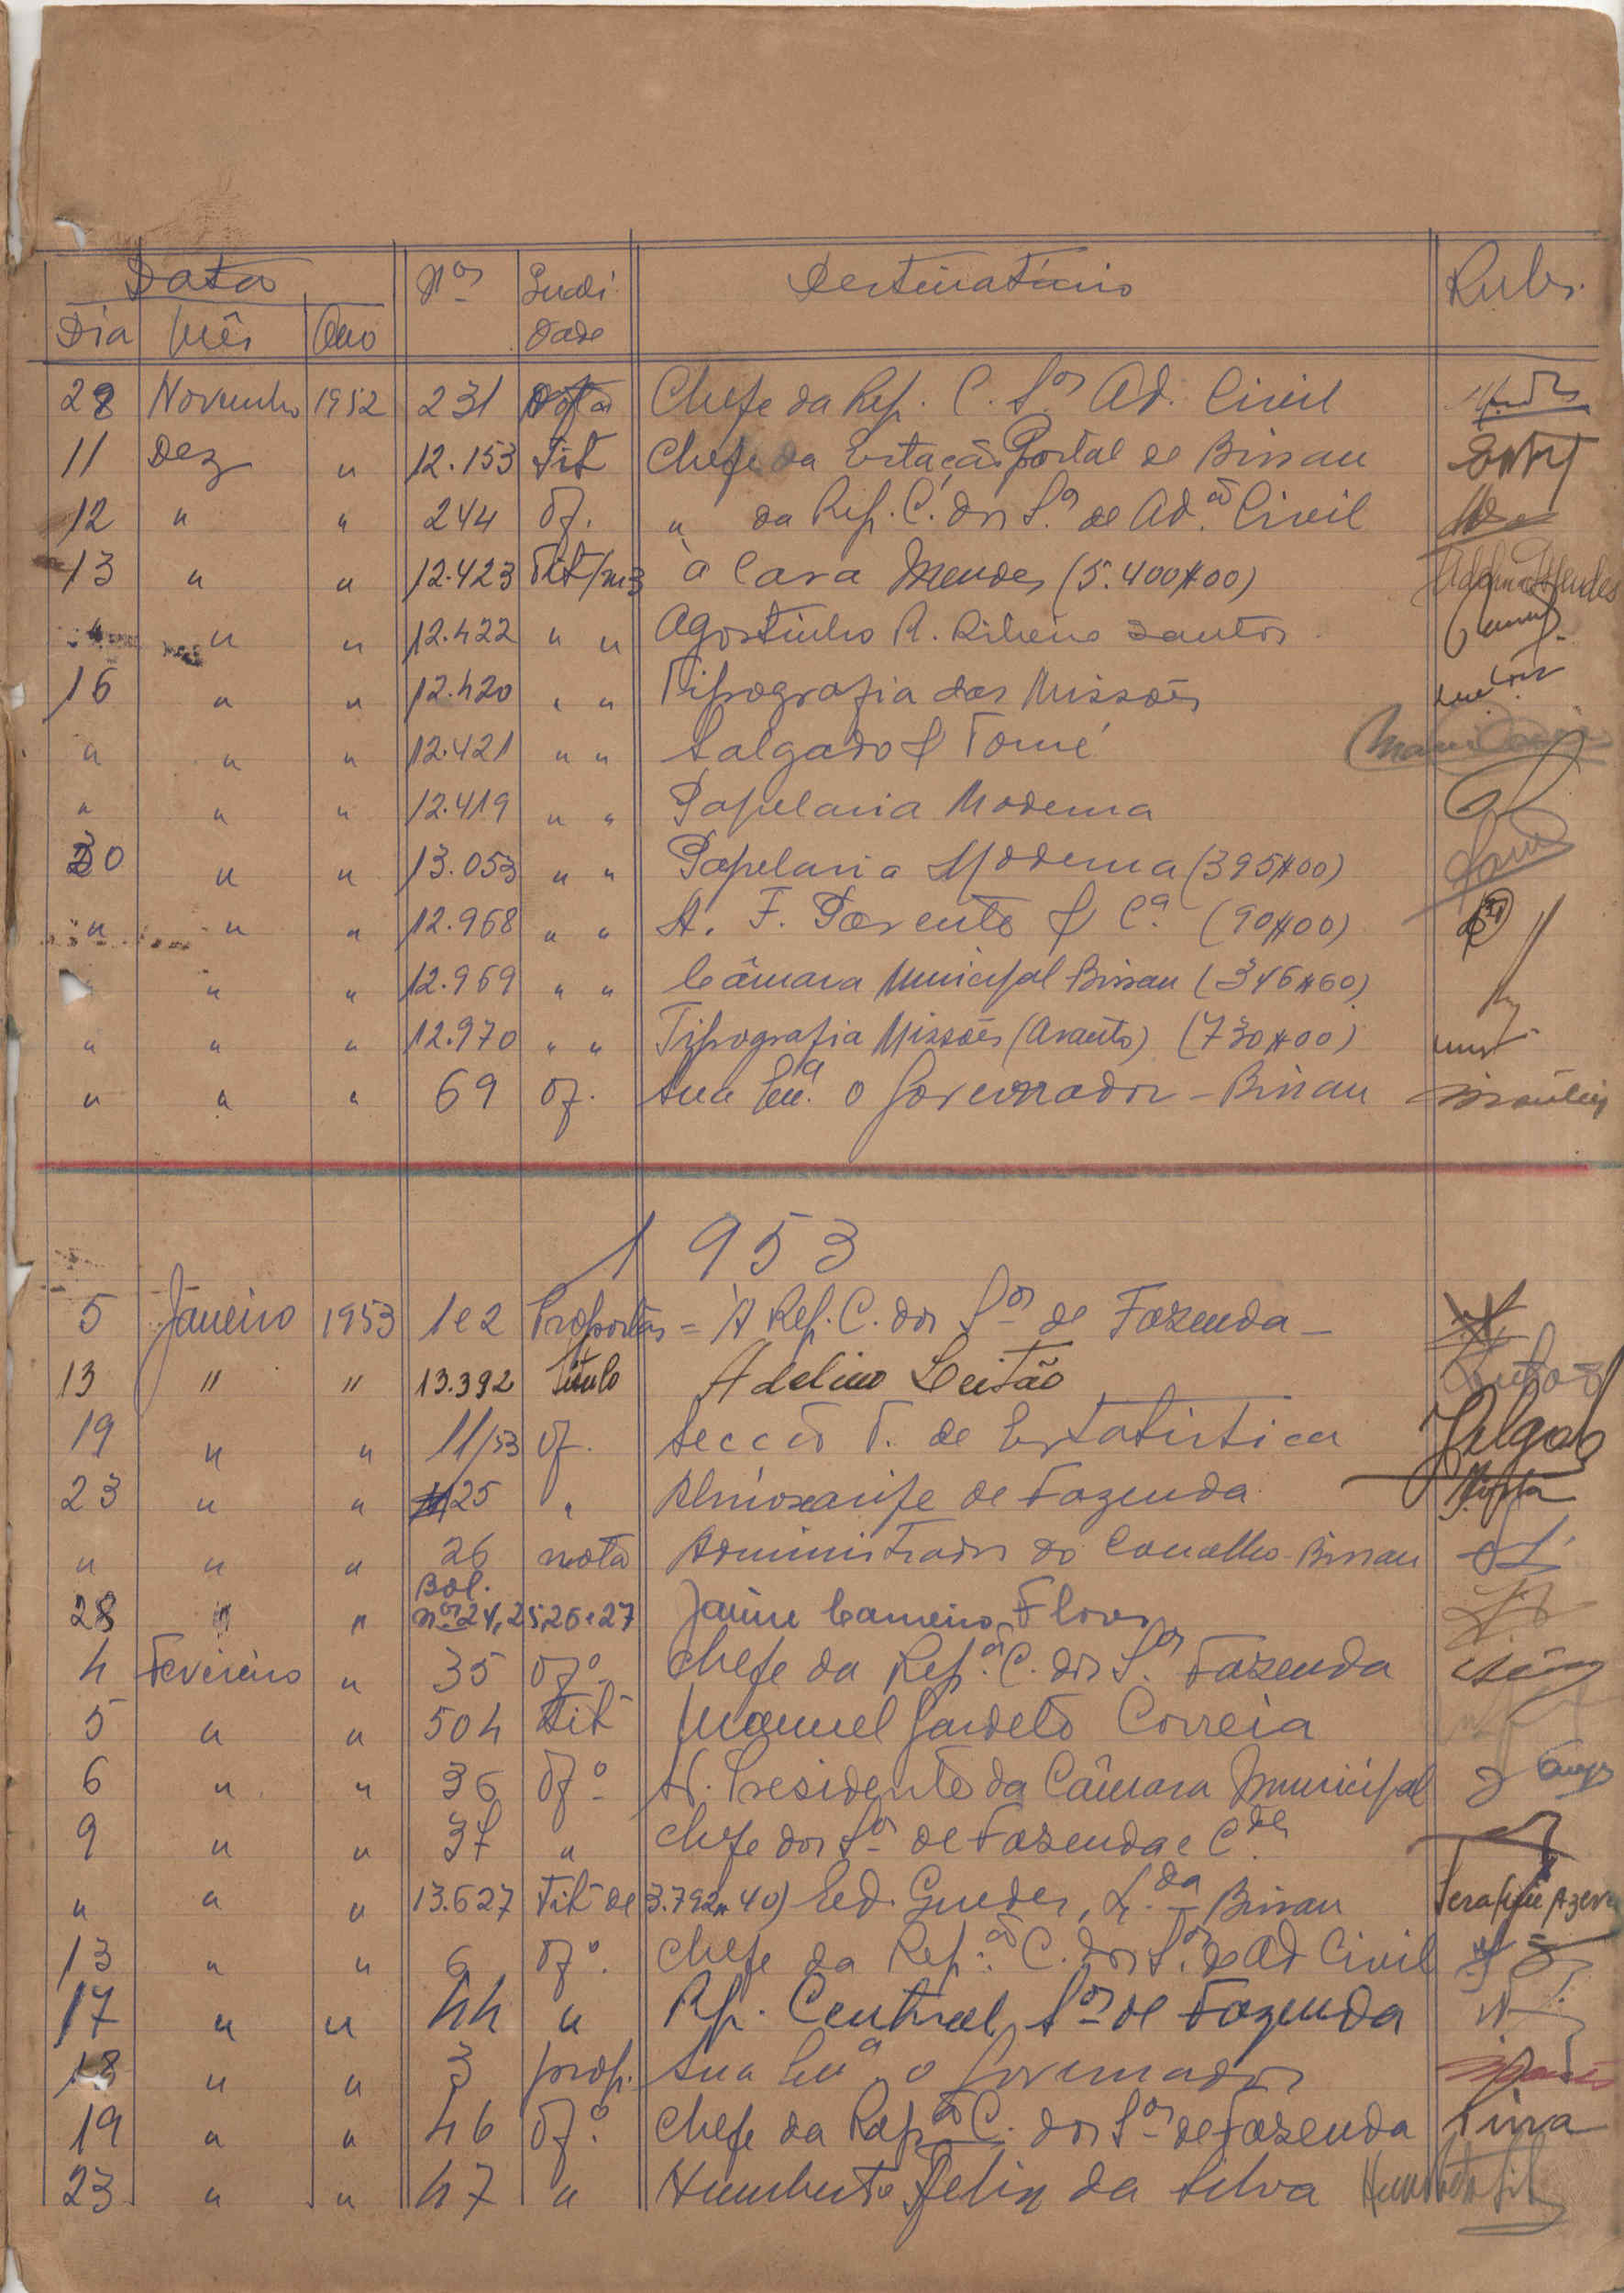 Data Nos Destinatário Rubr.
Dia Mês Ano dade
28 Novembro 1952 231 Chefe da Rep. C. Sos Ad. Civil
11 Dez " 12.153 Tit Chefe da Estação Postal de Bissau
12 " " 244 Of. " da Rep. C. dos S.os de Ad.ão Civil
13 " " 12.423 Tit/m3 à Casa Mendes (5.400$00) Mendes
" " " 12.422 " " Agostinho R. Ribeiro Santos
16 " " 12.420 " " Tipografia das Missões
" " " 12.421 " " Salgado & Tomé
" " " 12.419 " " Papelaria Moderna
30 " " 13.053 " " Papelaria Moderna (395$00)
" " " 12.968 " " A. F. Parente & Cª (90$00)
" " 12.969 " " Câmara Municipal Bissau (346$60)
" " " 12.970 " " Tipografia Missões (Arauto) (730$00)
" " " 69 Of. Sua Exª o Governador - Bissau
1953
5 Janeiro 1953 1 e 2 Propostas = À Rep. C. dos Sos de Fazenda -
13 " " 13.392 Título Adelino Leitão Leitão
19 " " 11/53 Of. Secção T. de Estatística
23 " " 25 " Almoxarife de Fazenda
" " " 26 nota Administrador do Concelho - Bissau
Bol.
28 " " nos 24, 25, 26 e 27 Jaime Carneiro Flores
4 Fevereiro " 35 Ofº Chefe da Rep.ão C. dos S.os Fazenda
5 " " 504 Tit Manuel Gardeto Correia
6 " " 36 Ofº Sr. Presidente da Câmara Municipal
9 " " 37 " Chefe dos Sos de Fazenda e C.de
" " " 13.627 Tit de 3.792$40) Ed. Guedes, L.da - Bissau
13 " " 6 Ofº. Chefe da Rep.ão C. dos S.os de Ad Civil
17 " " 44 " Rep. Central Sos de Fazenda
18 " " 3 prop. Sua Exª o Governador
19 " " 46 Ofº. Chefe da Rep.ão C. dos Sos de Fazenda
23 " " 47 " Humberto Felix da Silva